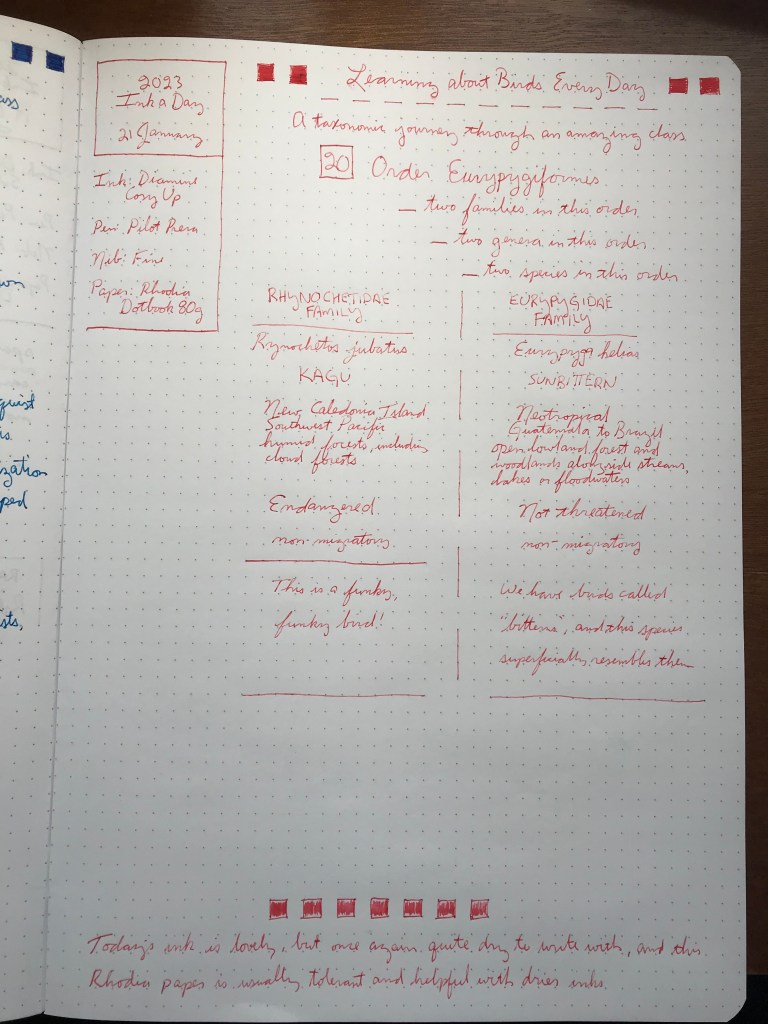 2023
Ink a Day
21 January
Ink: Diamine
Cosy Up
Pen: Pilot Prera
Nib: Fine
Paper: Rhodia
Dotbook 80g
Learning about Birds Every Day
A taxonomic journey through an amazing class
20 Order Eurypygiformes
— two families in this order
— two genera in this order
— two species in this order
RHYNOCHETIDAE
FAMILY
Rynochetos jubatus
KAGU
New Caledonia Island
Southwest Pacific
humid forests, including
cloud forests
Endangered
non-migratory
This is a funky,
funky bird!
EURYPYGIDAE
FAMILY
helias
SUNBITTERN
Neotropical
Guatemala to Brazil
open lowland forest and
woodlands alongside streams,
lakes or floodwaters
Not threatened
non-migratory
We have birds called
"bitterns", and this species
superficially resembles them
Today's ink is lovely, but once again quite dry to write with, and this
Rhodia paper is usually tolerant and helpful with drier inks.
quist
ization